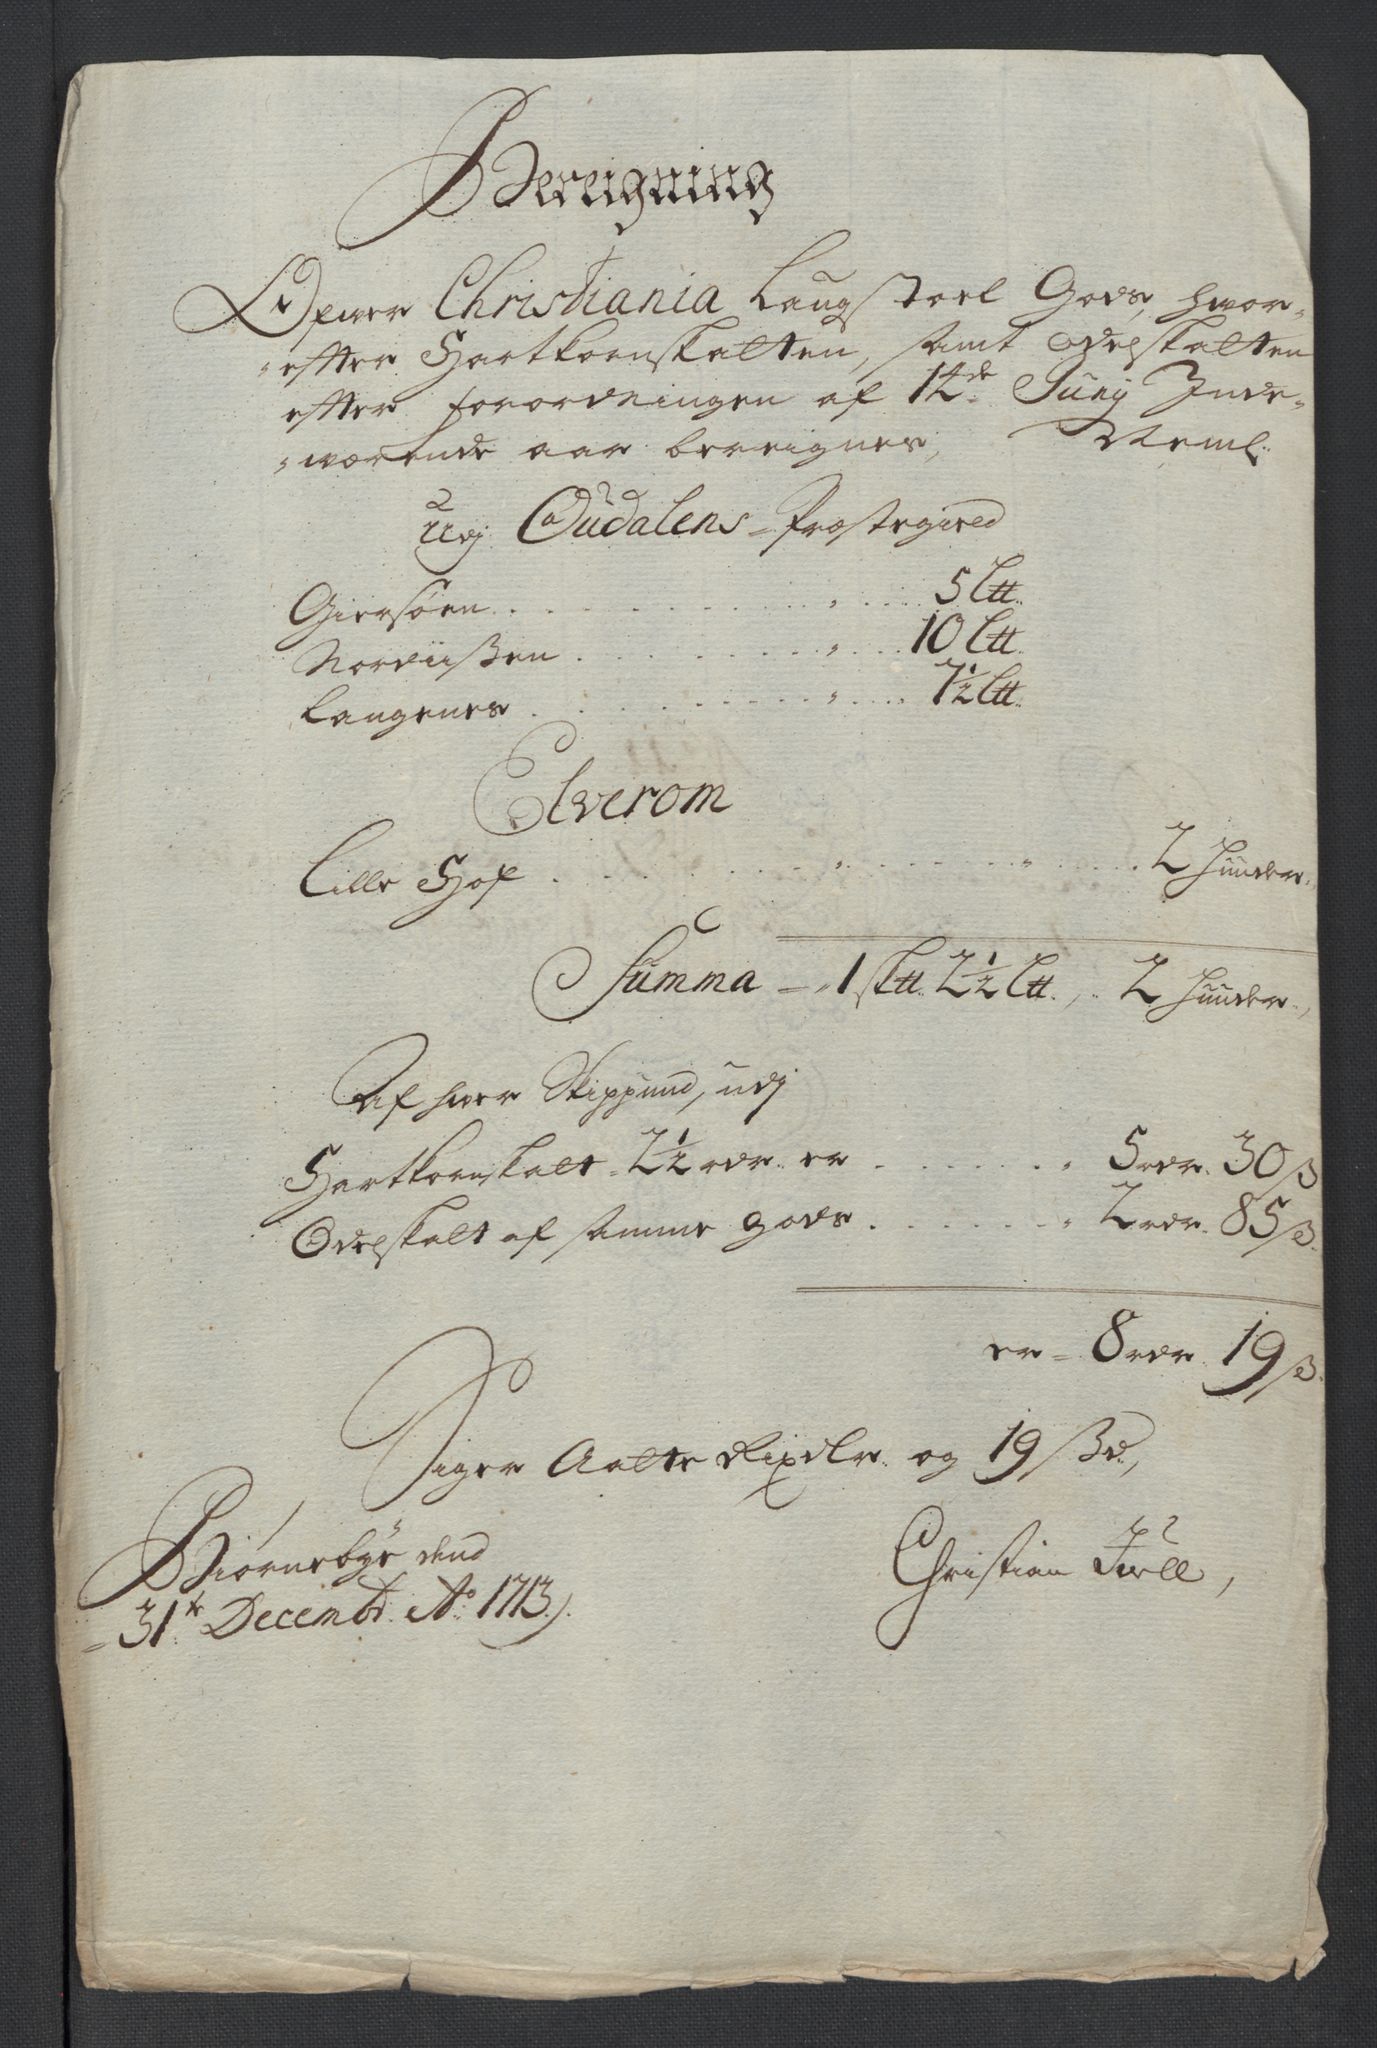 Bereigning
Ofwer Christiania Laugstoel Gods, hwor-
efter Hartkornskatten, samt Odelskatten
efter forordningen af 14de Junij Inde-
wærende aar bereignes, Neml:
Udj Oudalens Prostegield
Giersøen . . . 5 L℔.
Norduißen . . . 10 L℔.
Langenes . . . 7½ L℔.
Elverom
Lille Hof . . . 2 Huuder.
Summa - 1 Sk℔. 2½ L℔., 2 Huuder.,
Af hwer Skippund, udj
Hartkornskatt 2½ rdr. er . . . 5 rdr. 30 ß
Odelskatt af samme gods . . . 2 rdr. 85 ß.
er - 8 rdr. 19 ß.
Siger Aatte Rixdlr. og 19 ßd.,
Biørnebye dend
31te Decembr. Ao. 1713.
Christian Juell,